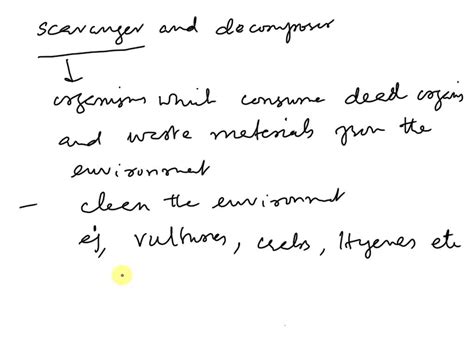 scavanger and decomposer
organisms which consume dead organis
and waste materials from the
environment
- cleen the environment
eg, vultures, crabs, Hyenes etc